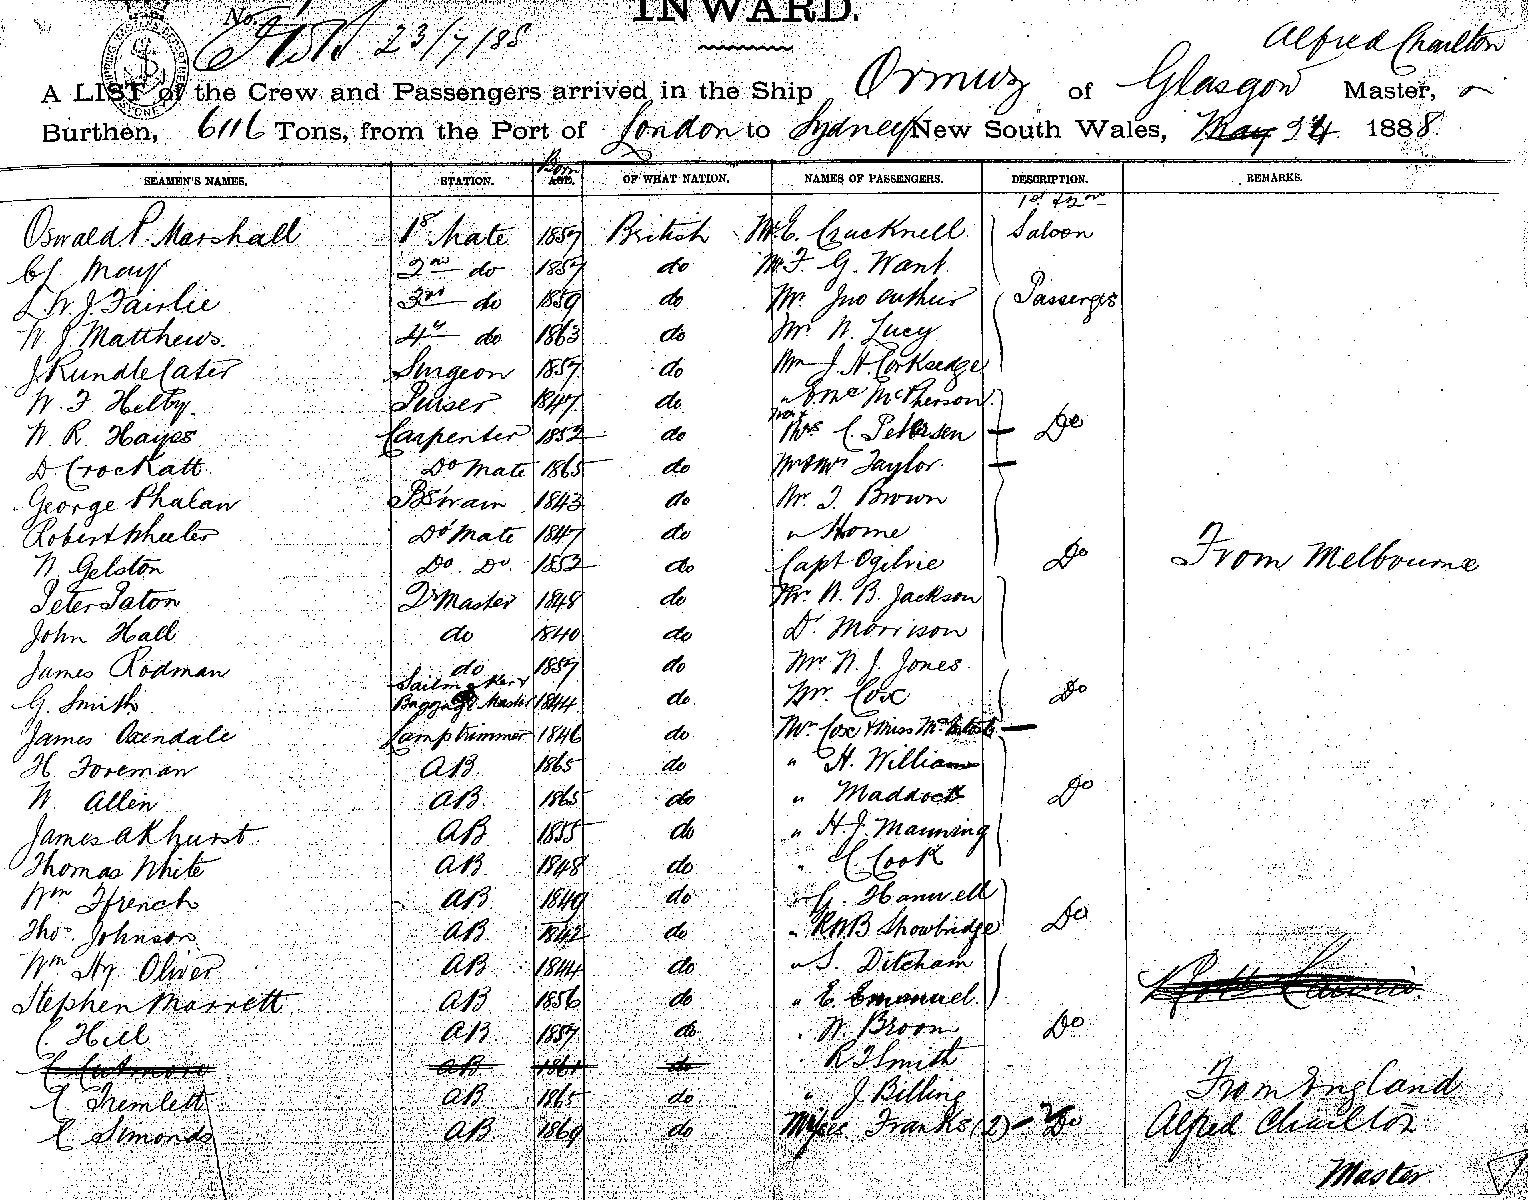 INWARD.
No.
23/7/88
Alfred Charlton
A LIST of the Crew and Passengers arrived in the Ship Ormuz of Glasgow Master,
Burthen, 6116 Tons, from the Port of London to Sydney New South Wales, May 24 1888
Born
SEAMEN'S NAMES. STATION. AGE. OF WHAT NATION. NAMES OF PASSENGERS. DESCRIPTION. REMARKS.
1st & 2nd
Oswald P. Marshall 1st Mate 1857 British Mr E. Cracknell Saloon
May 2nd do 1857 do Mr F. G. Want
W. J. Fairlie 3rd do 1859 do Mr. Jno Arthur Passengers
W J Matthews. 4th do 1863 do Mr W. Lucy
J. Rundle Cater Surgeon 1857 do J. H. Corksedge
W. F Helby. Purser 1847 do McPherson
W. R. Hayes Carpenter 1852 do Mrs C. Petersen Do
D Crockatt Do Mate 1865 do Taylor
George Phalan BSwain 1843 do Mr. J. Brown
Robert Wheeler Do Mate 1847 do " Home
W. Gelston Do Do 1852 do Capt Ogilvie Do From Melbourne
Peter Paton Qr Master 1848 do Mr. W. B. Jackson
John Hall do 1840 do Dr. Morrison
James Rodman do 1857 do Mr. W. J. Jones.
Sailmaker &
G. Smith Baggage Master 1844 do Mr. Cox Do
James Oxendale Lamptrimmer 1846 do Mrs Cox & Miss
H. Foreman AB 1865 do " H. William
W. Allen AB 1865 do " Maddock Do
James Akhurst AB 1855 do " H. J. Manning
Thomas White AB 1848 do " C Cook
Wm Ffrench AB 1849 do " G. Hanwell
Thos. Johnson AB 1842 do " Showbridge Do
Wm Hy. Oliver AB 1844 do " S. Ditcham
Stephen Marrett AB 1856 do " E. Emanuel.
C. Hill AB 1857 do " W. Broom Do
AB 1861 do R F Smith
Tremlett AB 1865 do " J. Billing From England
Simonds AB 1869 do Misses Franks (2) Do Alfred Charlton
Master